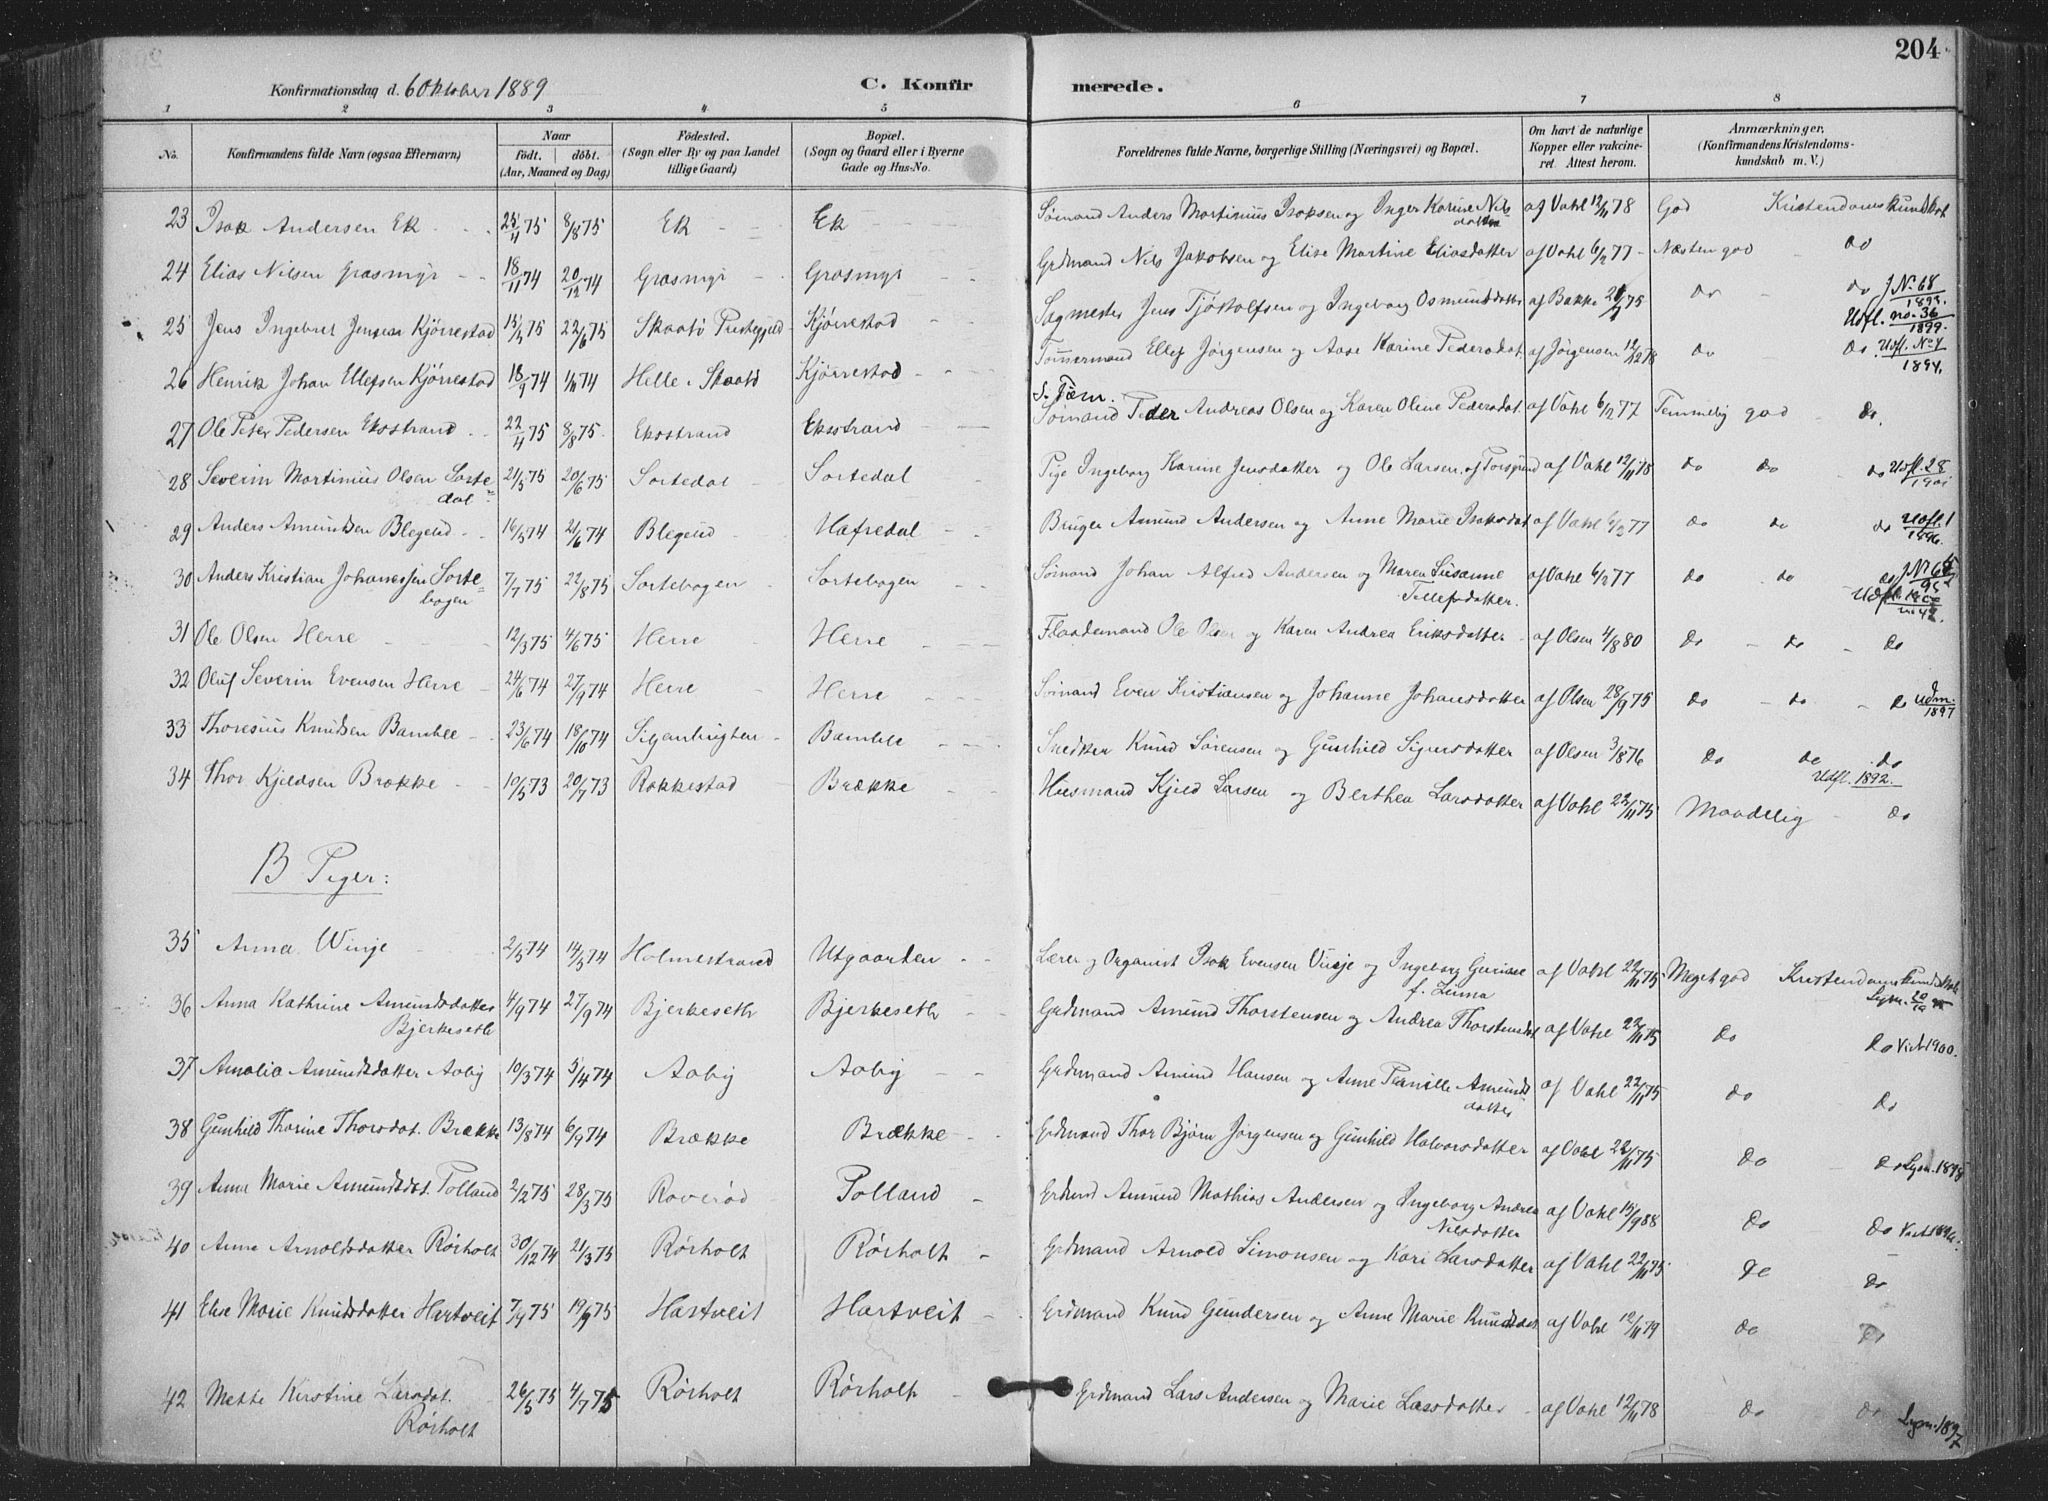 204
Konfirmationsdag d. 6 Oktober 1889
C. Konfirmerede.
1 2 3 4 5 6 7 8
No.
Konfirmandens fulde Navn (ogsaa Efternavn)
Naar
födt. döbt.
(Aar, Maaned og Dag)
Födested.
(Sogn eller By og paa Landet
tillige Gaard)
Bopæl.
(Sogn og Gaard eller i Byerne
Gade og Hus-No.
Forældrenes fulde Navne, borgerlige Stilling (Næringsvei) og Bopæl.
Om havt de naturlige
Kopper eller vakcine-
ret. Attest herom.
Anmærkninger,
(Konfirmandens Kristendoms-
kundskab m. V.)
23 Isak Andersen Ek 25/4 75 8/8 75 Ek Ek Sømand Anders Martinius Isaksen og Inger Karine Nilsdatter af Vahl 12/11 78 God Kristendomskundskab
24 Elias Nilsen Grasmyr 18/11 74 20/12 74 Grasmyr Grasmyr Grdmand Nils Jakobsen og Elise Martine Eliasdatter af Vahl 6/2 77 Næsten god do
25 Jens Ingebret Jensen Kjørrestad 22/6 75 Skaatø Prestegjeld Kjørrestad Sagmester Jens Tjøstolfsen og Ingeborg Osmundsdatter af Bakke do do J. No. 68 / 1893. Udfl. no. 36 / 1899.
26 Henrik Johan Ellefsen Kjørrestad 18/9 74 Helle i Skaatø Kjørrestad Tømmermand Ellef Jørgensen og Aase Karine Pedersdat. af Jørgensen 12/12 78 do do Udfl. No 4 / 1894.
27 Ole Peter Pedersen Ekstrand 22/4 75 8/8 75. Ekstrand Ekstrand S. Tøm. Sømand Peder Andreas Olsen og Karen Oline Pedersdat. af Vahl 6/2 77 Temmelig god do.
28 Severin Martinius Olsen Sortedal 21/5 75 20/6 75 Sortedal Sortedal Pige Ingeborg Karine Jensdatter og Ole Larsen af Vahl 12/11 78 do do do Udfl. 28 / 1901
29 Anders Amundsen Blegeud 16/5 74 21/6 74 Blegeud Hafredal Bruger Amund Andersen og Anne Marie Isaksdat af Vahl 6/2 77 do do do Udfl. 1 / 1896.
30 Anders Kristian Johannessen Sortebogen 7/7 75 22/8 75 Sortebogen Sortebogen Sømand Johan Alfred Andersen og Maren Susanne Tellefsdatter. af Vahl 6/2 77 do do do
31 Ole Olsen Herre 12/3 75 4/6 75 Herre Herre Flaademand Ole Olsen og Karen Andrea Eriksdatter af Olsen 4/8 80 do do do
32 Oluf Severin Evensen Herre 24/6 74 27/9 74 Herre Herre Sømand Even Kristiansen og Johanne Johansdatter af Olsen 28/9 75 do do do Udm. / 1897
33 Thoresius Knudsen Bamble 23/6 74 18/10 74 Bamble Snedker Knud Sørensen og Gunhild Sigursdatter af Olsen 3/8 76 do do do
34 Thor Kjeldsen Brække 10/5 73 20/7 73 Rakkestad Brække Husmand Kjeld Larsen og Berthea Larsdatter af Vahl 22/11 75 Maadelig do Udfl. 1892.
B Piger:
35 Anna Winje 2/3 74 14/5 74 Holmestrand Utgaarden Lærer og Organist Isak Evensen Vinje og Ingeborg Gurine f. Linna af Vahl 22/11 75 Meget god Kristendomskundskab
36 Anna Kathrine Amundsdatter Bjerkeseth 4/9 74 27/9 74 Bjerkeseth Bjerkeseth Grdmand Amund Thorstensen og Andrea Thorstensdat af Vahl 22/11 75 do do Vidt 1900.
37 Amalia Amundsdatter Aaby 10/3 74 5/4 74 Aaby Aaby Grdmand Amund Hansen og Anne Pernille Amundsdatter af Vahl 22/11 75 do do
38 Gunhild Thorine Thorsdat. Brække 13/8 74 6/9 74 Brække Brække Grdmand Thor Bjørn Jørgensen og Gunhild Halvorsdatter af Vahl 22/11 75 do do Lysn. 1898
39 Anna Marie Amundsdat. Tolland 2/2 75 28/3 75 Roverød Tolland Grdmd Amund Mathias Andersen og Ingeborg Andrea Nilsdatter af Vahl 15/9 88 do do
40 Anne Arnoldsdatter Rørholt 30/12 74 21/3 75 Rørholt Rørholt Grdmand Arnold Simonsen og Kari Larsdatter af Vahl 22/11 75 do do
41 Elise Marie Knudsdatter Hartveit 7/9 75 19/9 75 Hartveit Hartveit Grdmand Knud Gundersen og Anne Marie Knudsdat af Vahl 12/11 79 do do
42 Mette Kirstine Larsdat. Rørholt 26/5 75 4/7 75 Rørholt Rørholt Grdmand Lars Andersen og Marie Larsdatter af Vahl 12/11 78 do do Lysn. 1897